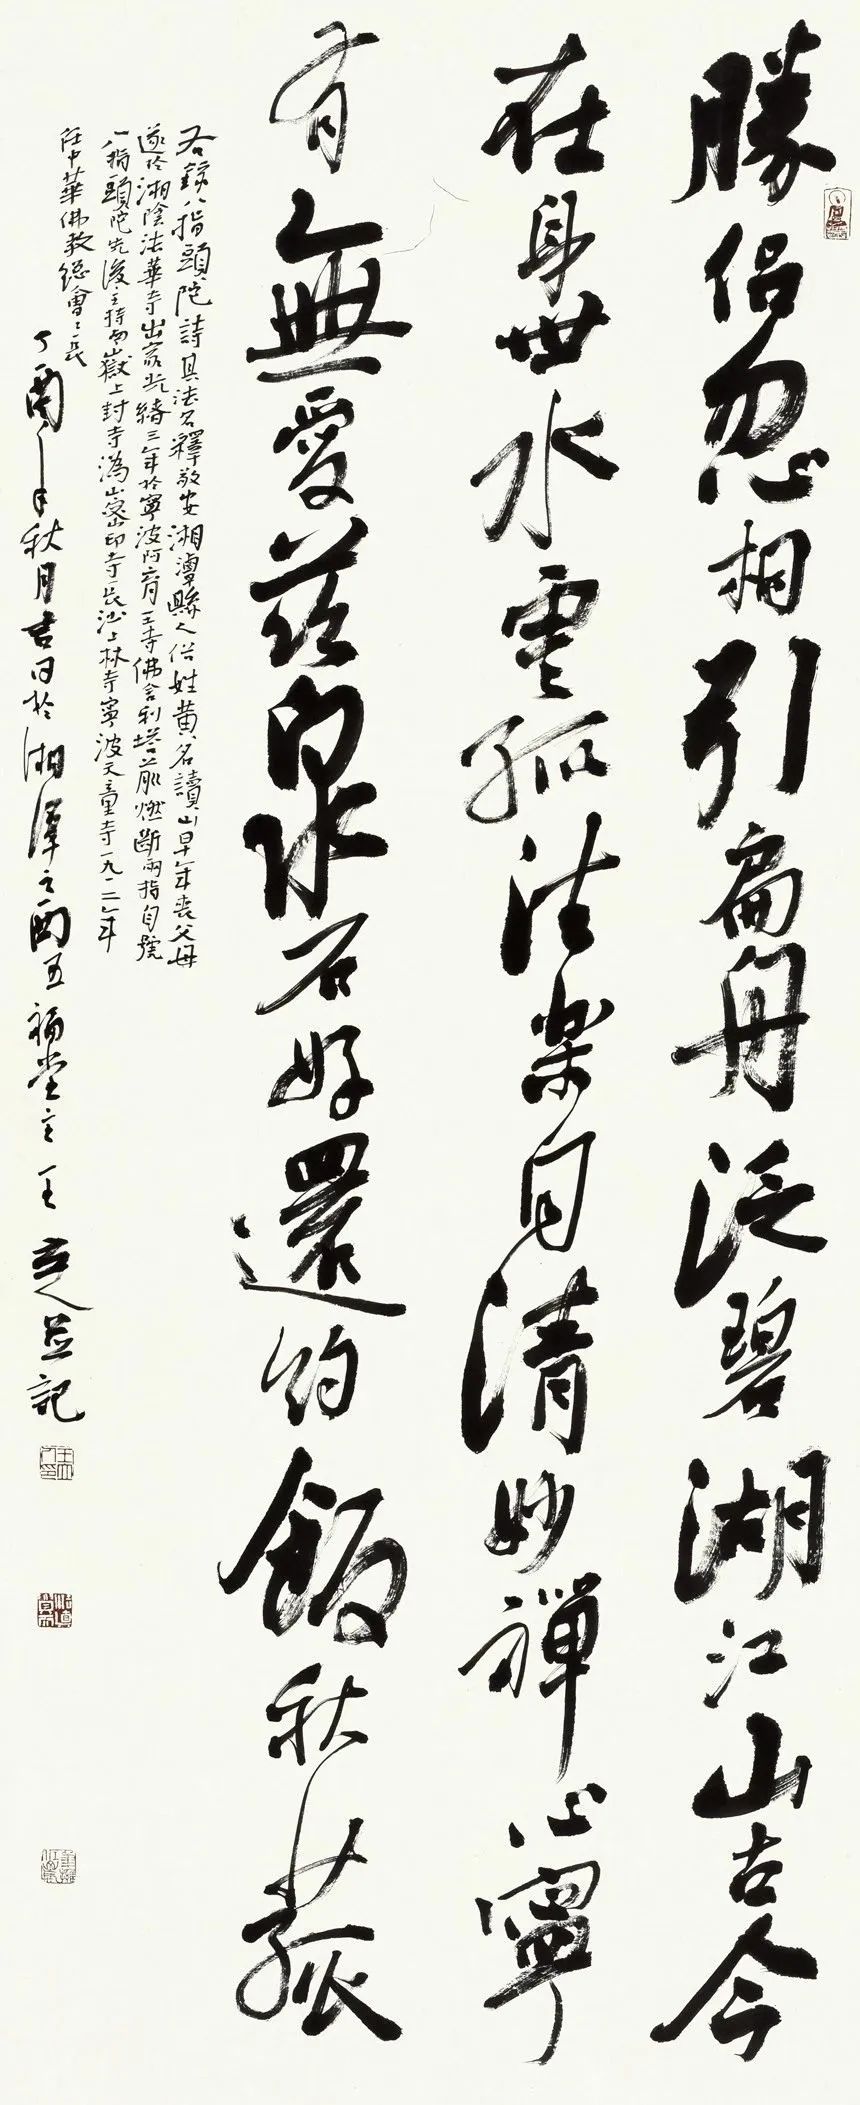 勝侶忽相引扁舟泛碧湖江山古今
在身世水雲孤法樂自清妙禪心寧
有無愛茲泉石好還約飯秋菰
右錄八指頭陀詩其法名釋敬安湘潭縣人俗姓黄名讀山早年喪父母
遂於湘陰法華寺出家光緒三年於寧波阿育王寺佛舍利塔前燃斷兩指自號
八指頭陀先後主持南嶽上封寺溈山密印寺長沙上林寺寧波天童寺一九一二年
任中華佛教總會會長
丁酉年秋月吉日於湘潭之酉五福堂主王立人並記